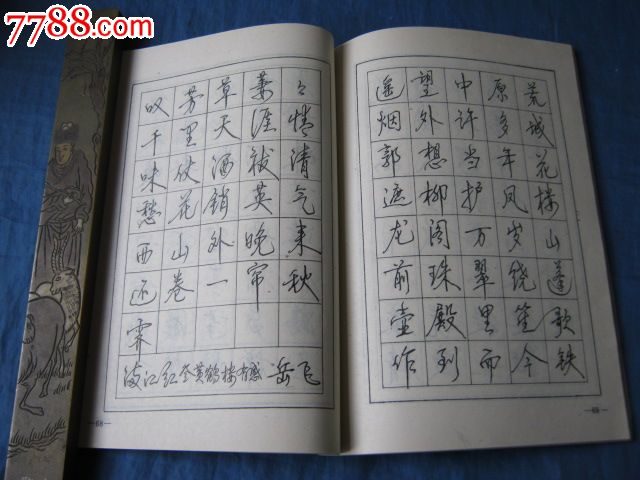 7788.com
叹芳草萋々
千里天涯情
味仗酒祓清
愁花销英气
西山外晚来
还卷一帘秋
霁
满江红 登黄鹤楼有感 岳飞
—68—
遥望中原荒
烟外许多城
郭想当年花
遮柳护凤楼
龙阁万岁山
前珠翠绕蓬
壶殿里笙歌
作到而今铁
—69—